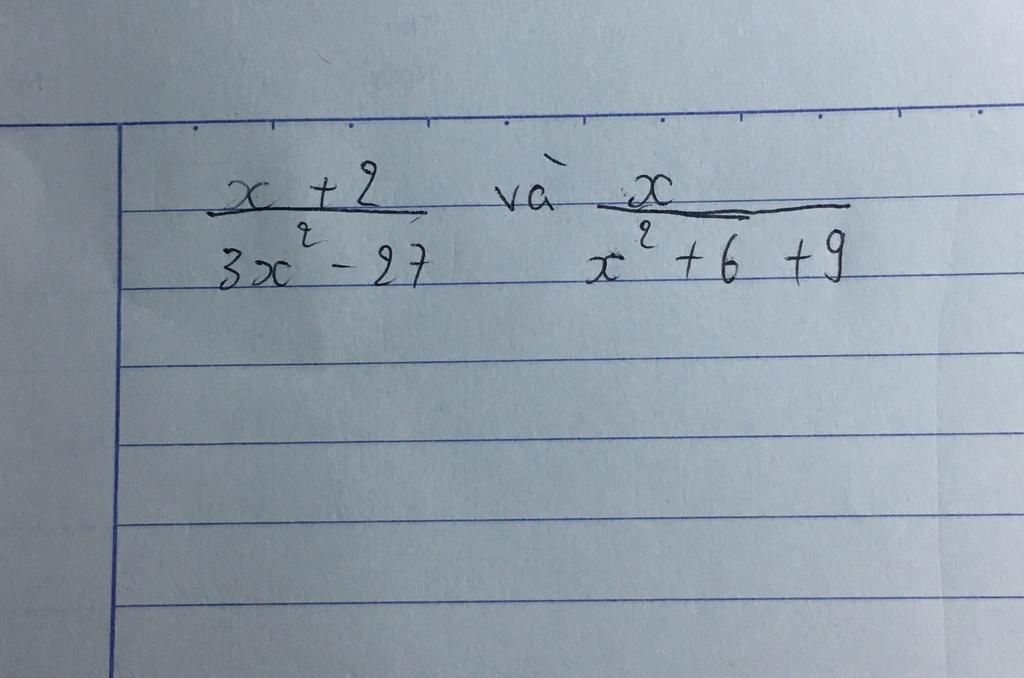 x + 2 / 3x² - 27 và x / x² + 6 + 9